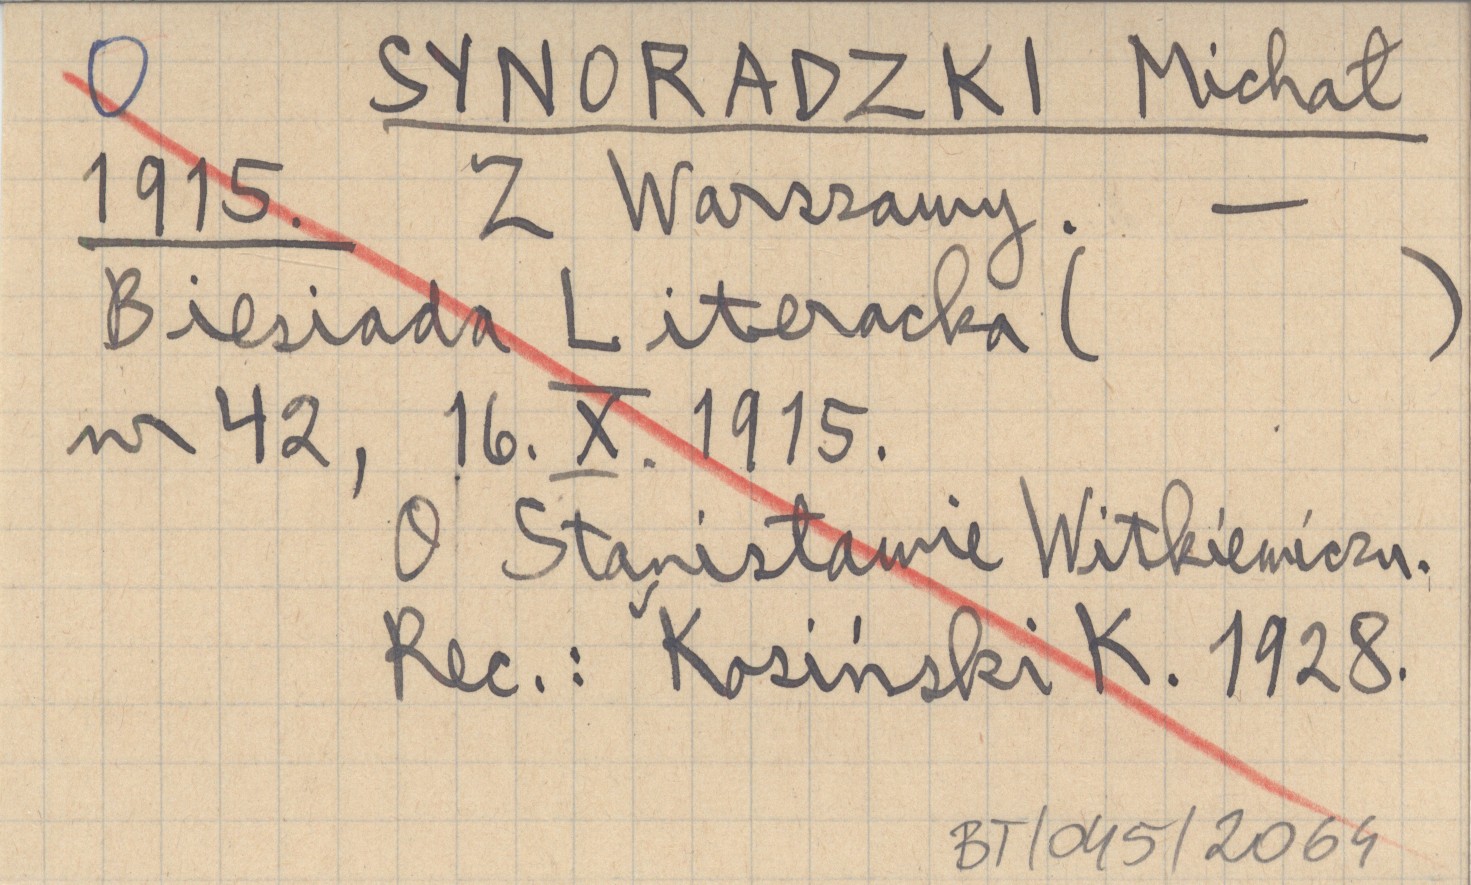 O SYNORADZKI Michał
1915. Z Warszawy. —
Biesiada Literacka ( )
nr 42, 16. X. 1915.
O Stanisławie Witkiewiczu.
Rec.: Kosiński K. 1928.
BT/045/2064